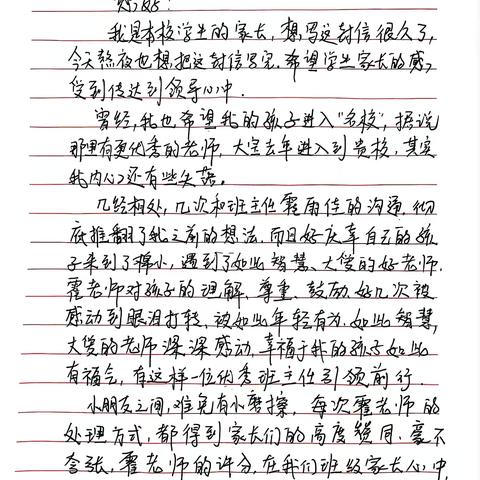 您好:
我是本校学生的家长,想写这封信很久了,
今天熬夜也想把这封信写完.希望学生家长的感
受到传达到领导心中.
曾经,我也希望我的孩子进入"名校",据说
那里有更优秀的老师,大宝去年进入到贵校,其实
我内心还有些失落。
几经相处,几次和班主任霍雨佳的沟通.彻
底推翻了我之前的想法.而且好庆幸自己的孩
子来到了小,遇到了如此智慧、大爱的好老师.
霍老师对孩子的理解、尊重、鼓励.好几次被
感动到眼泪打转,被如此年轻有为.如此智慧,
大爱的老师深深感动,幸福于我的孩子如此
有福气,有这样一位优秀班主任引领前行.
小朋友之间,难免有小磨擦,每次霍老师的
处理方式,都得到家长们的高度赞同.毫不
夸张,霍老师的评分,在我们班级家长心中,